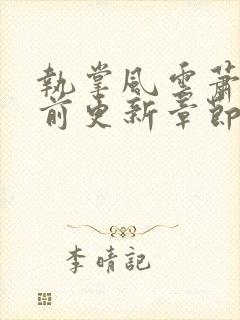 執掌風雲蕭
前更新章節
李晴記